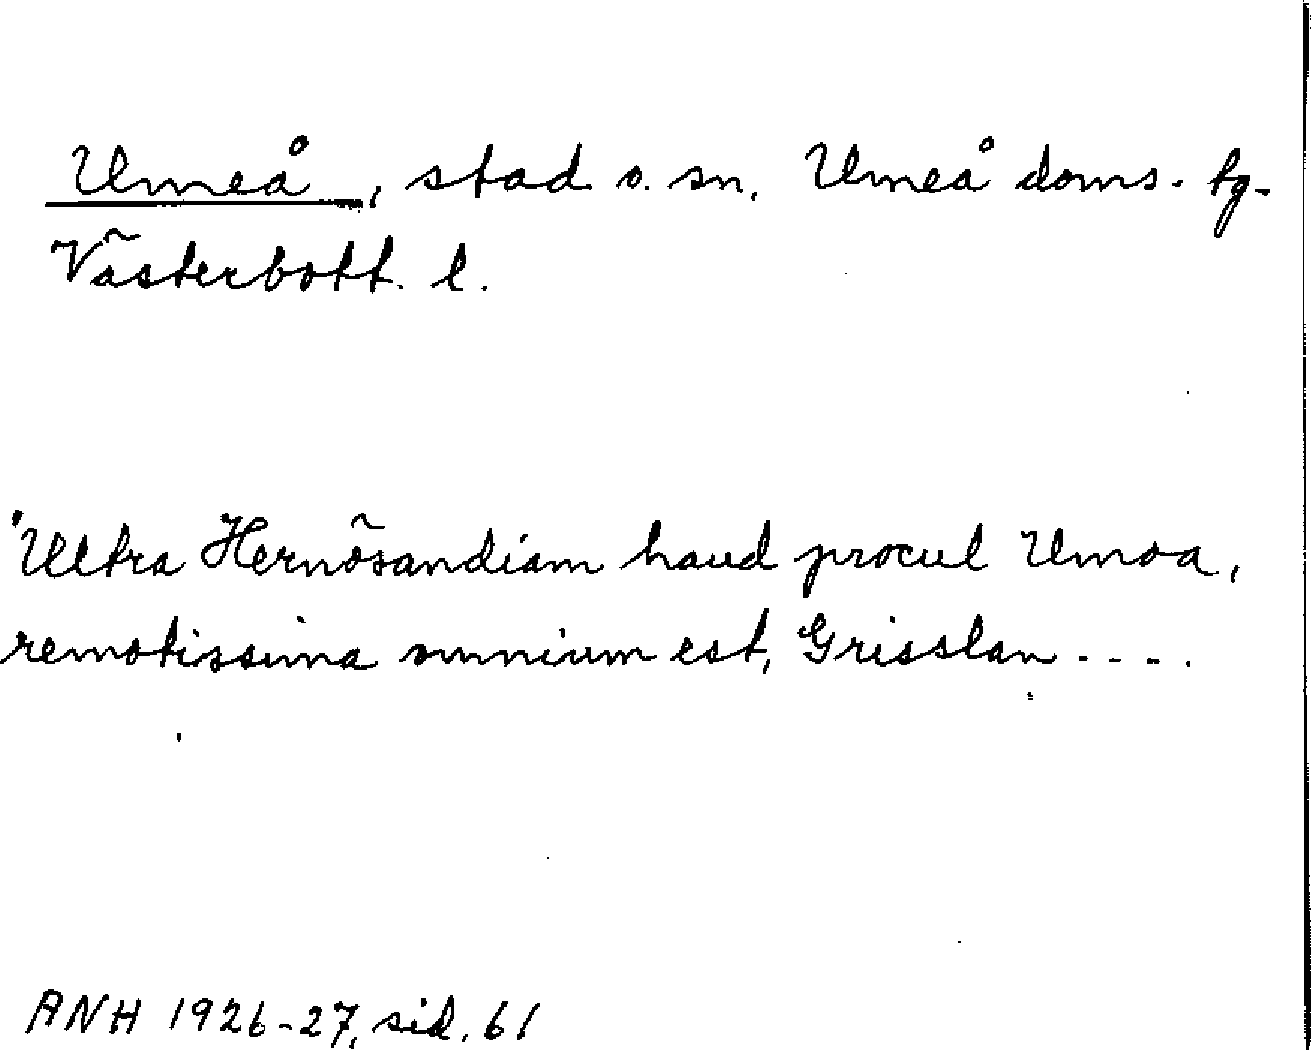 Umeå, stad o. sn, Umeå doms. tg.
Västerbott. l.
"Ultra Hernösandiam haud procul Umoa,
remotissima omnium est, Grisslan ....
ANH 1926-27, sid. 61